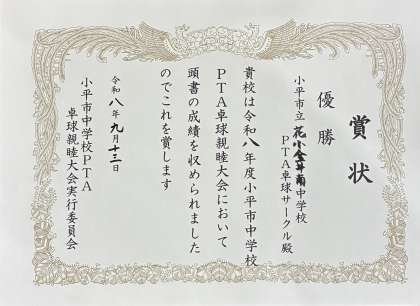 賞状
優勝
小平市立花小金井南中学校
PTA卓球サークル殿
貴校は令和八年度小平市中学校
PTA卓球親睦大会において
頭書の成績を収められました
のでこれを賞します
令和八年九月十三日
小平市中学校PTA
卓球親睦大会実行委員会